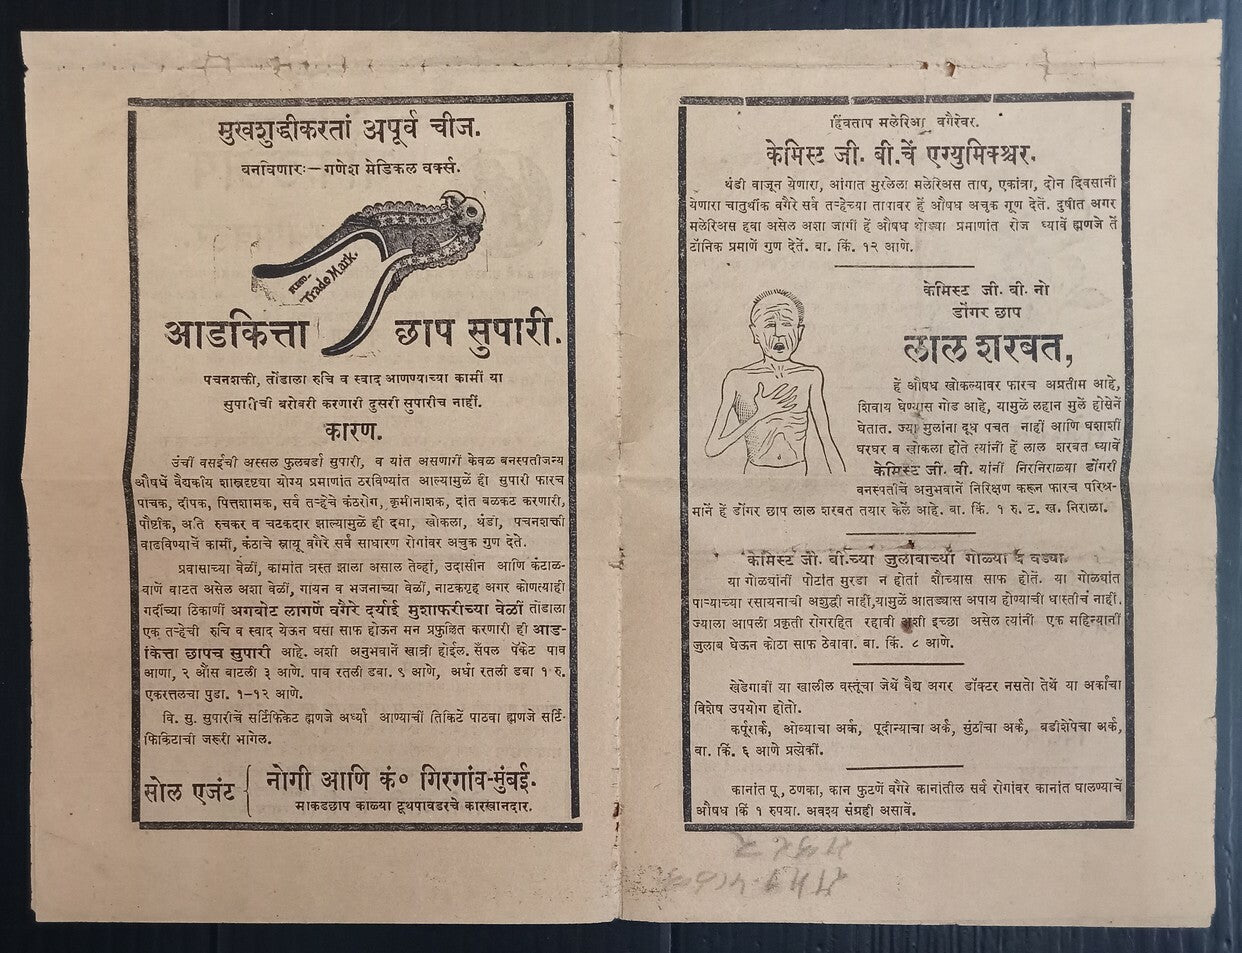 मुखशुद्धीकरतां अपूर्व चीज.
बनविणारः—गणेश मेडिकल वर्क्स.
REGD.
Trade Mark.
आडकित्ता छाप सुपारी.
पचनशक्ती, तोंडाला रुचि व स्वाद आणण्याच्या कामीं या
सुपारीची बरोबरी करणारी दुसरी सुपारीच नाहीं.
कारण.
उंची वसईची अस्सल फुलबर्डा सुपारी, व यांत असणारीं केवळ बनस्पतीजन्य
औषधें वैद्यकीय शास्त्रदृष्ट्या योग्य प्रमाणांत ठरविण्यांत आल्यामुळें ही सुपारी फारच
पाचक, दीपक, पित्तशामक, सर्व तऱ्हेचे कंठरोग, कृमीनाशक, दांत बळकट करणारी,
पौष्टीक, अति रुचकर व चटकदार झाल्यामुळें ही दमा, खोकला, थंडी, पचनशक्ती
वाढविण्याचें कामीं, कंठाचे स्नायू वगैरे सर्व साधारण रोगांवर अचुक गुण देते.
प्रवासाच्या वेळीं, कामांत त्रस्त झाला असाल तेव्हां, उदासीन आणि कंटाळ-
वाणें वाटत असेल अशा वेळीं, गायन व भजनाच्या वेळीं, नाटकगृह अगर कोणत्याही
गर्दीच्या ठिकाणीं अगबोट लागणें वगैरे दर्याई मुशाफरीच्या वेळीं तोंडाला
एक तऱ्हेची रुचि व स्वाद येऊन घसा साफ होऊन मन प्रफुल्लित करणारी ही आड-
कित्ता छापच सुपारी आहे. अशी अनुभवानें खात्री होईल. सँपल पॅकेट पाव
आणा, २ औंस बाटली ३ आणे. पाव रतली डबा. ९ आणे, अर्धा रतली डबा १ रु.
एकरत्तलचा पुडा. १-१२ आणे.
वि. सु. सुपारीचें सर्टिफिकेट ह्मणजे अर्ध्या आण्याचीं तिकिटें पाठवा ह्मणजे सर्टि-
फिकिटाची जरूरी भागेल.
सोल एजंट
नोगी आणि कं० गिरगांव-मुंबई.
माकडछाप काळ्या टूथपावडरचे कारखानदार.
हिंवताप मलेरिआ वगैरेवर.
केमिस्ट जी. बी.चें एग्युमिक्श्चर.
थंडी वाजून येणारा, आंगात मुरलेला मलेरिअस ताप, एकांत्रा, दोन दिवसानीं
येणारा चातुर्थीक वगैरे सर्व तऱ्हेच्या तापावर हें औषध अचुक गूण देतें. दुषीत अगर
मलेरिअस हवा असेल अशा जागीं हें औषध थोड्या प्रमाणांत रोज घ्यावें ह्मणजे तें
टॉनिक प्रमाणें गुण देतें. बा. किं. १२ आणे.
केमिस्ट जी. बी. नो
डोंगर छाप
लाल शरबत,
हें औषध खोकल्यावर फारच अप्रतीम आहे,
शिवाय घेण्यास गोड आहे, यामुळें लहान मुलें होसेनें
घेतात. ज्या मुलांना दूध पचत नाहीं आणि घशाशीं
घरघर व खोकला होते त्यांनीं हें लाल शरबत घ्यावें
केमिस्ट जी. बी. यांनीं निरनिराळ्या डोंगरी
वनस्पतींचें अनुभवानें निरिक्षण करून फारच परिश्र-
मानें हें डोंगर छाप लाल शरबत तयार केलें आहे. बा. किं. १ रु. ट. ख. निराळा.
केमिस्ट जी. बी.च्या जुलाबाच्या गोळ्या व वड्या
या गोळ्यांनीं पोटांत मुरडा न होतां शौच्यास साफ होतें. या गोळ्यांत
पाऱ्याच्या रसायनाची अशुद्धी नाहीं,यामुळें आतड्यास अपाय होण्याची धास्तीच नाहीं.
ज्याला आपली प्रकृती रोगरहित रहावी अशी इच्छा असेल त्यांनीं एक महिन्यानीं
जुलाब घेऊन कोठा साफ ठेवावा. बा. किं. ८ आणे.
खेडेगावीं या खालील वस्तूंचा जेथें वैद्य अगर डॉक्टर नसतो तेथें या अर्काचा
विशेष उपयोग होतो.
कर्पूरार्क, ओव्याचा अर्क, पूदीन्याचा अर्क, सुंठीचा अर्क, बडीशेपेचा अर्क,
बा. किं. ६ आणे प्रत्येकीं.
कानांत पू, ठणका, कान फुटणें वगैरे कानांतील सर्व रोगांवर कानांत घालण्याचें
औषध किं १ रुपया. अवश्य संग्रही असावें.